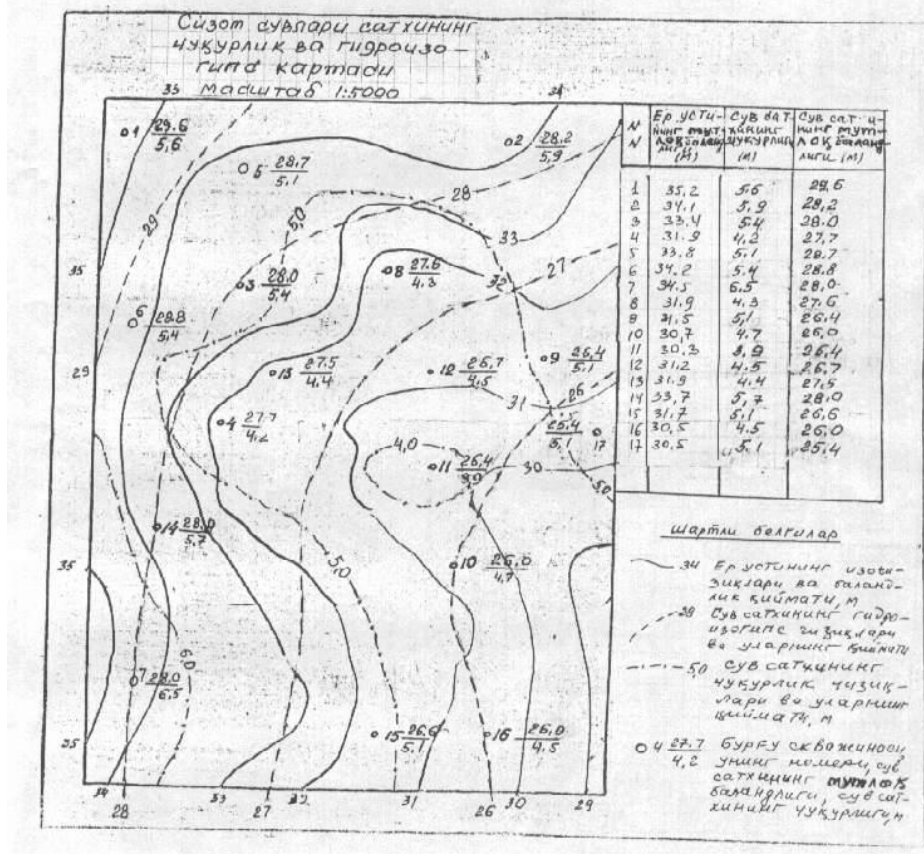 Сизот сувлари сатхининг
чуқурлик ва гидроизо-
гипс картаси
масштаб 1:5000
35
34
1 29.6
5,6
2 28.2
5,9
5 28.7
5.1
28
29
5,0
33
27
35
3 28.0
5.4
8 27.6
4.3
32
6 28.8
5,4
29
13 27.5
4.4
12 26,7
4,5
9 26.4
5.1
31
26
4 27.7
4,2
25.4
5,1
17
4,0
11 26.4
30
5,0
14 28.0
5.7
10 26,0
4.7
35
5,0
6,0
7 28.0
6,5
35
15 26,6
5.1
16 26,0
4,5
34
28
33
27
31
26
30
29
N
N
Ер усти-
нинг мут-
лоқ баланд-
лиги (м)
Сув сат-
хининг
чуқурлиги
(м)
Сув сатхи-
нинг мут-
лоқ баланд
лиги (м)
1 35,2 5,6 29.6
2 34,1 5,9 28,2
3 33,4 5.4 28.0
4 31.9 4.2 27,7
5 33.8 5.1 28.7
6 34.2 5.4 28.8
7 34.5 6.5 28,0
8 31,9 4,3 27.6
9 31.5 5,1 26.4
10 30,7 4.7 26,0
11 30.3 3,9 26,4
12 31.2 4.5 26,7
13 31.9 4.4 27,5
14 33,7 5,7 28.0
15 31,7 5,1 26,6
16 30,5 4.5 26.0
17 30.5 5,1 25.4
шартли белгилар
34 Ер устининг изочи-
зиқлари ва баланд-
лик қиймати, м
28 Сув сатхининг гидро-
изогипс чизиқлари
ва уларнинг қиймати
5,0 Сув сатхининг
чуқурлик чизиқ-
лари ва уларнинг
қиймати, м
4 27.7
4,2
бурғу скважинаси
унинг номери, сув
сатхининг мутлоқ
баланлиги, сув сат-
хининг чуқурлиги, м